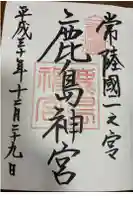 常陸國一之宮
鹿島神宮
平成三十年十二月二十九日